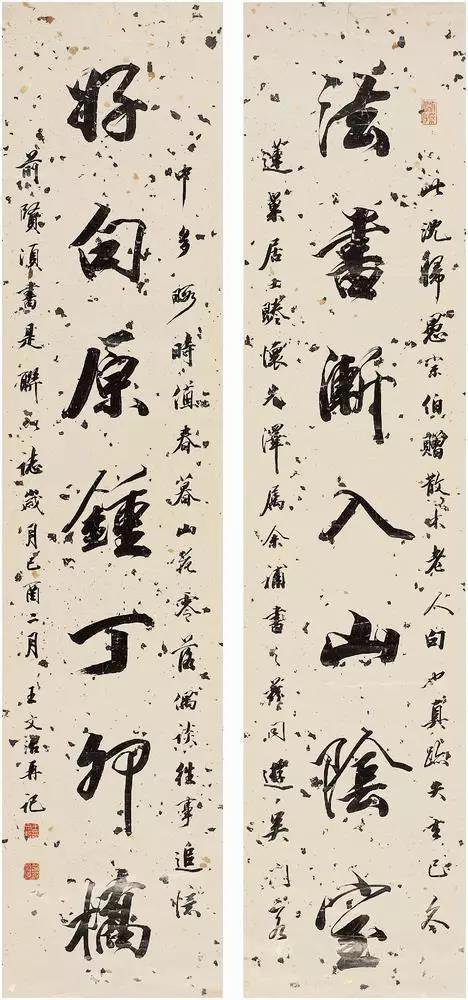 法書漸入山陰室
此沈歸愚宗伯贈散木老人句也真跡失去已久
蓬巢居士睠懷先澤属余補書之同遊吳門客
好句原鍾丁卯橋
中多暇時值春暮山花零落偶談往事追憶
前賢須書是聯以誌歲月己酉二月王文治再记